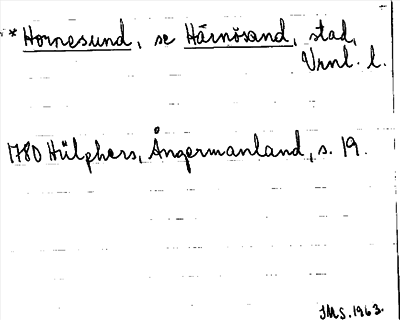 * Hornesund, se Härnösand, stad,
Vrnl. l.
1780 Hülphers, Ångermanland, s. 19.
IMS. 1963.